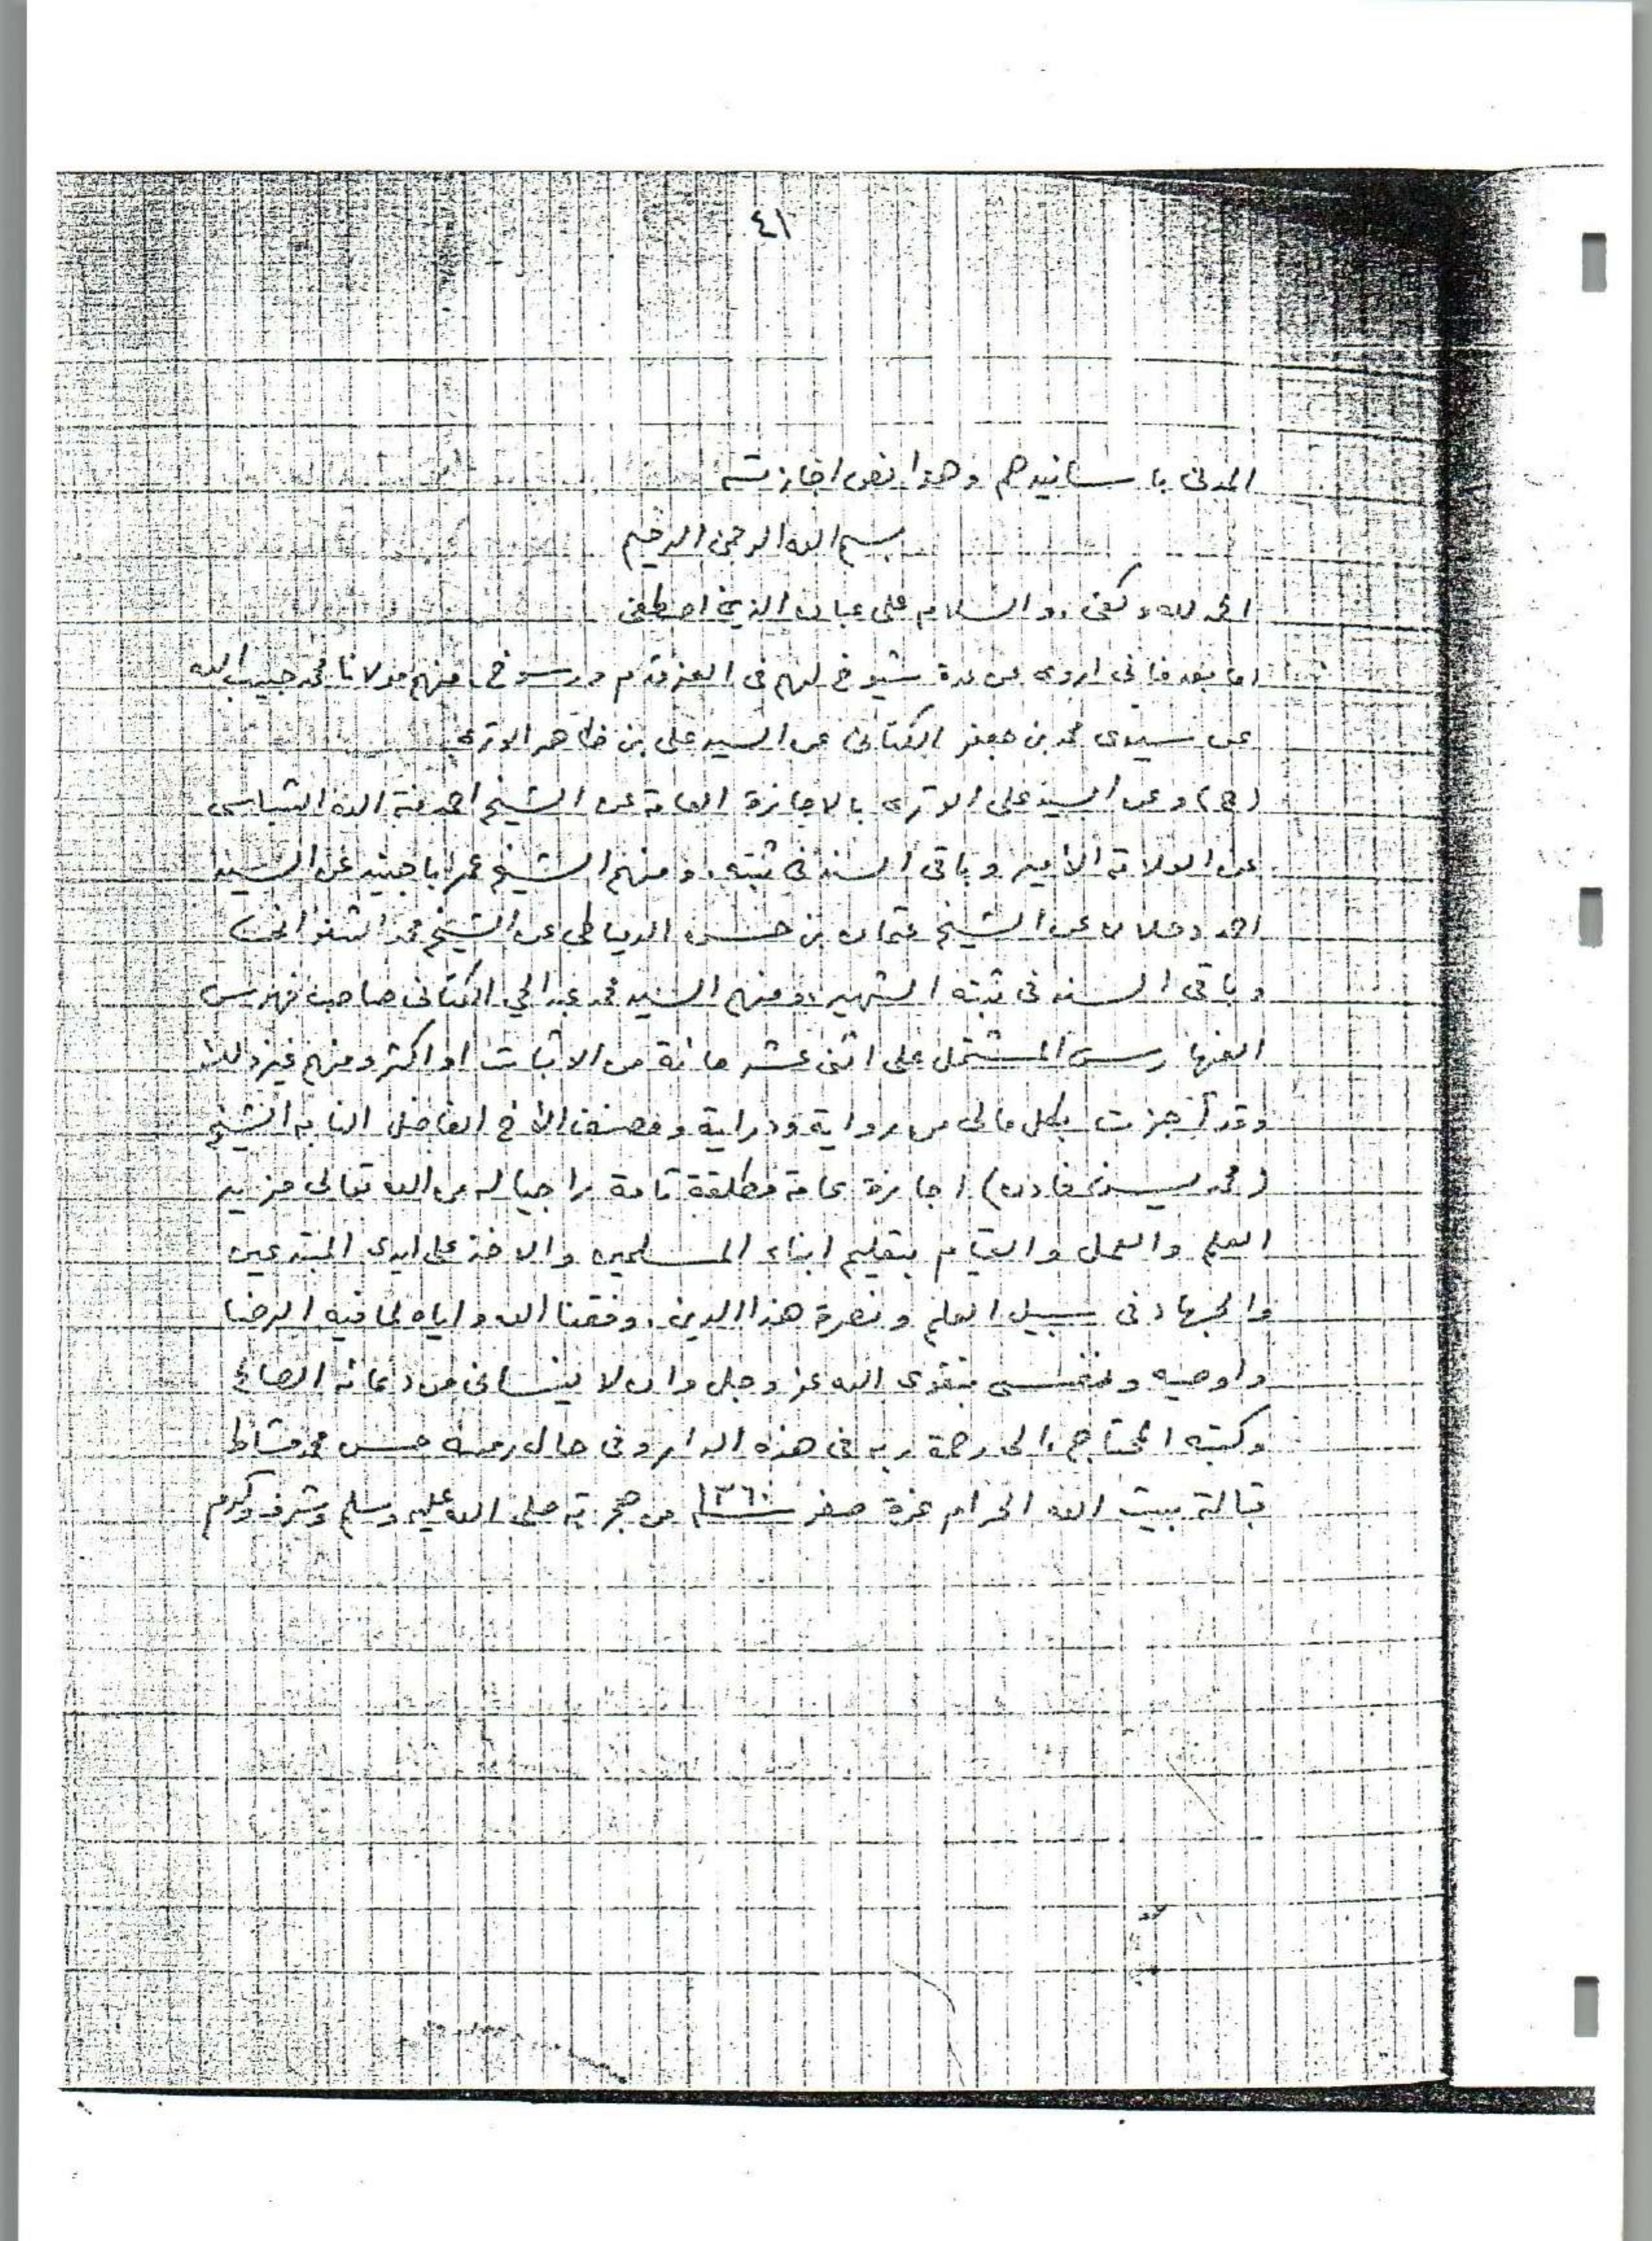 ٤١
المدنى باسانيدهم وهذا نص اجازته
بسم الله الرحمن الرحيم
الحمد لله وكفى والسلام على عباده الذين اصطفى
اما بعد فانى اروى عن عدة شيوخ لهم فى العز قدم ورسوخ منهم مولانا محمد حبيب الله
عن سيدى محمد بن جعفر الكتانى عن السيد على بن ظاهر الوترى
(ح) وعن السيد على الوترى بالاجازة العامة عن الشيخ احمد منة الله الشباسى
عن العلامة الأمير وباقى السند فى ثبته. ومنهم الشيخ عمر باجنيد عن السيد
احمد دحلان عن الشيخ عثمان بن حسن الدمياطى عن الشيخ محمد الشنوانى
وباقى السند فى ثبته الشهير، ومنهم السيد محمد عبد الحي الكتانى صاحب فهرس
الفهارس المشتمل على اثنى عشر مائة من الاثبات او اكثر ومنهم غير ذلك
وقد أجزت بكل مالى من رواية ودراية ومصنف الأخ الفاضل النابه الشيخ
(محمد يسن فادن) اجازة عامة مطلقة تامة راجيا له من الله تعالى مزيد
العلم والعمل والقيام بتعليم ابناء المسلمين والاخذ على ايدى المبتدعين
والجهاد فى سبيل العلم ونصرة هذا الدين. وفقنا الله واياه لما فيه الرضا
واوصيه ونفسى بتقوى الله عز وجل وان لا ينسانى من دعائه الصالح
وكتبه المحتاج الى رحمة ربه فى هذه الدار وفى حال رمسه حسن محمد مشاط
قبالة بيت الله الحرام غرة صفر سنة ١٣٦٠ من هجرته صلى الله عليه وسلم وشرف وكرم